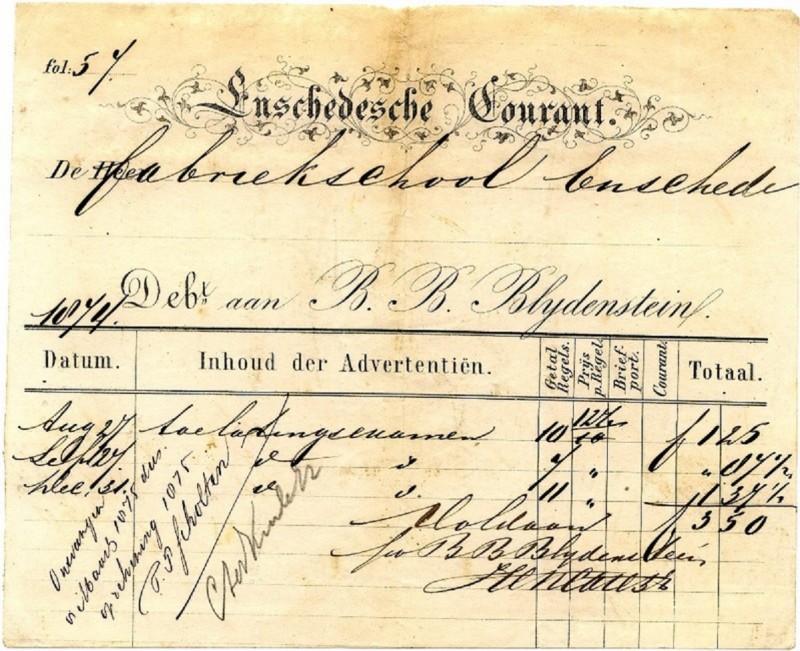 fol: 57
Enschedesche Courant.
De Heer Fabriekschool Enschede
1874. Debr. aan B. B. Blydenstein.
Datum. Inhoud der Advertentiën. Getal Regels. Prijs p. Regel. Briefport. Courant. Totaal.
Aug 27 toelatingsexamen 10 12½ f 1 25
Sept 27 " " 7 " " 87½
Dec. 31. " " 11 " " 1 37½
Voldaan f 3 50
pr B B Blydenstein
Ontvangen
in Maart 1875 dus
op rekening 1875.
Scholten